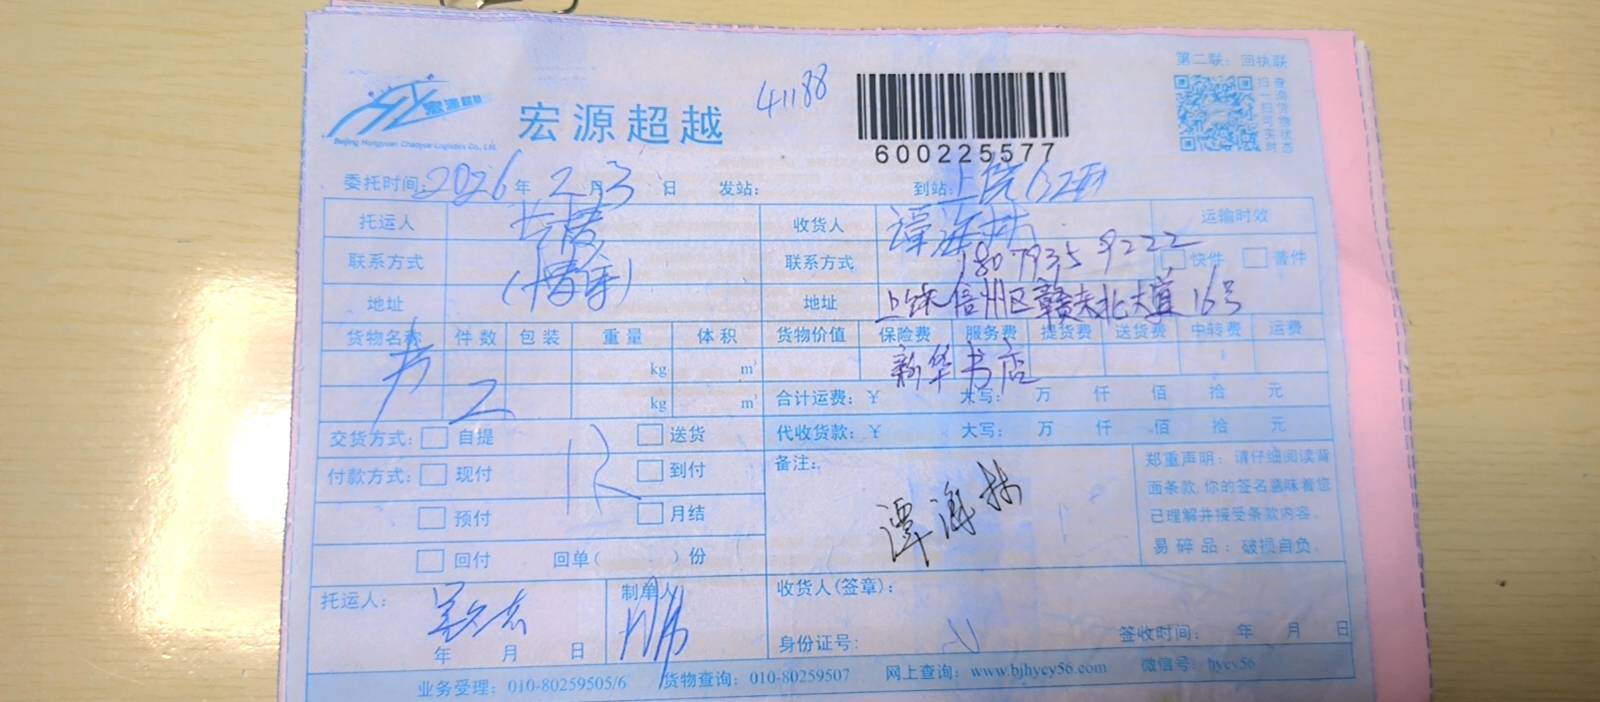 第二联：回执联
宏源超越
Beijing Hongyuan Chaoyue Logistics Co., Ltd.
宏源超越
41188
600225577
扫一扫可实时
查询货物状态
委托时间：2026年2月3日 发站： 到站：上饶
托运人 收货人 谭海林 运输时效
联系方式 联系方式 18079359222 快件 普件
地址 地址 上饶信州区赣东北大道16号
货物名称 件数 包装 重量 体积 货物价值 保险费 服务费 提货费 送货费 中转费 运费
kg m³ 新华书店
书 2 kg m³ 合计运费：￥ 大写： 万 仟 佰 拾 元
交货方式： 自提 送货 代收货款：￥ 大写： 万 仟 佰 拾 元
付款方式： 现付 到付 备注：
预付 月结
回付 回单（ ）份
谭海林
郑重声明：请仔细阅读背
面条款，你的签名意味着您
已理解并接受条款内容。
易碎品：破损自负。
托运人： 制单人 收货人(签章)：
年 月 日 身份证号： 签收时间： 年 月 日
业务受理：010-80259505/6 货物查询：010-80259507 网上查询：www.bjhycy56.com 微信号：hycy56